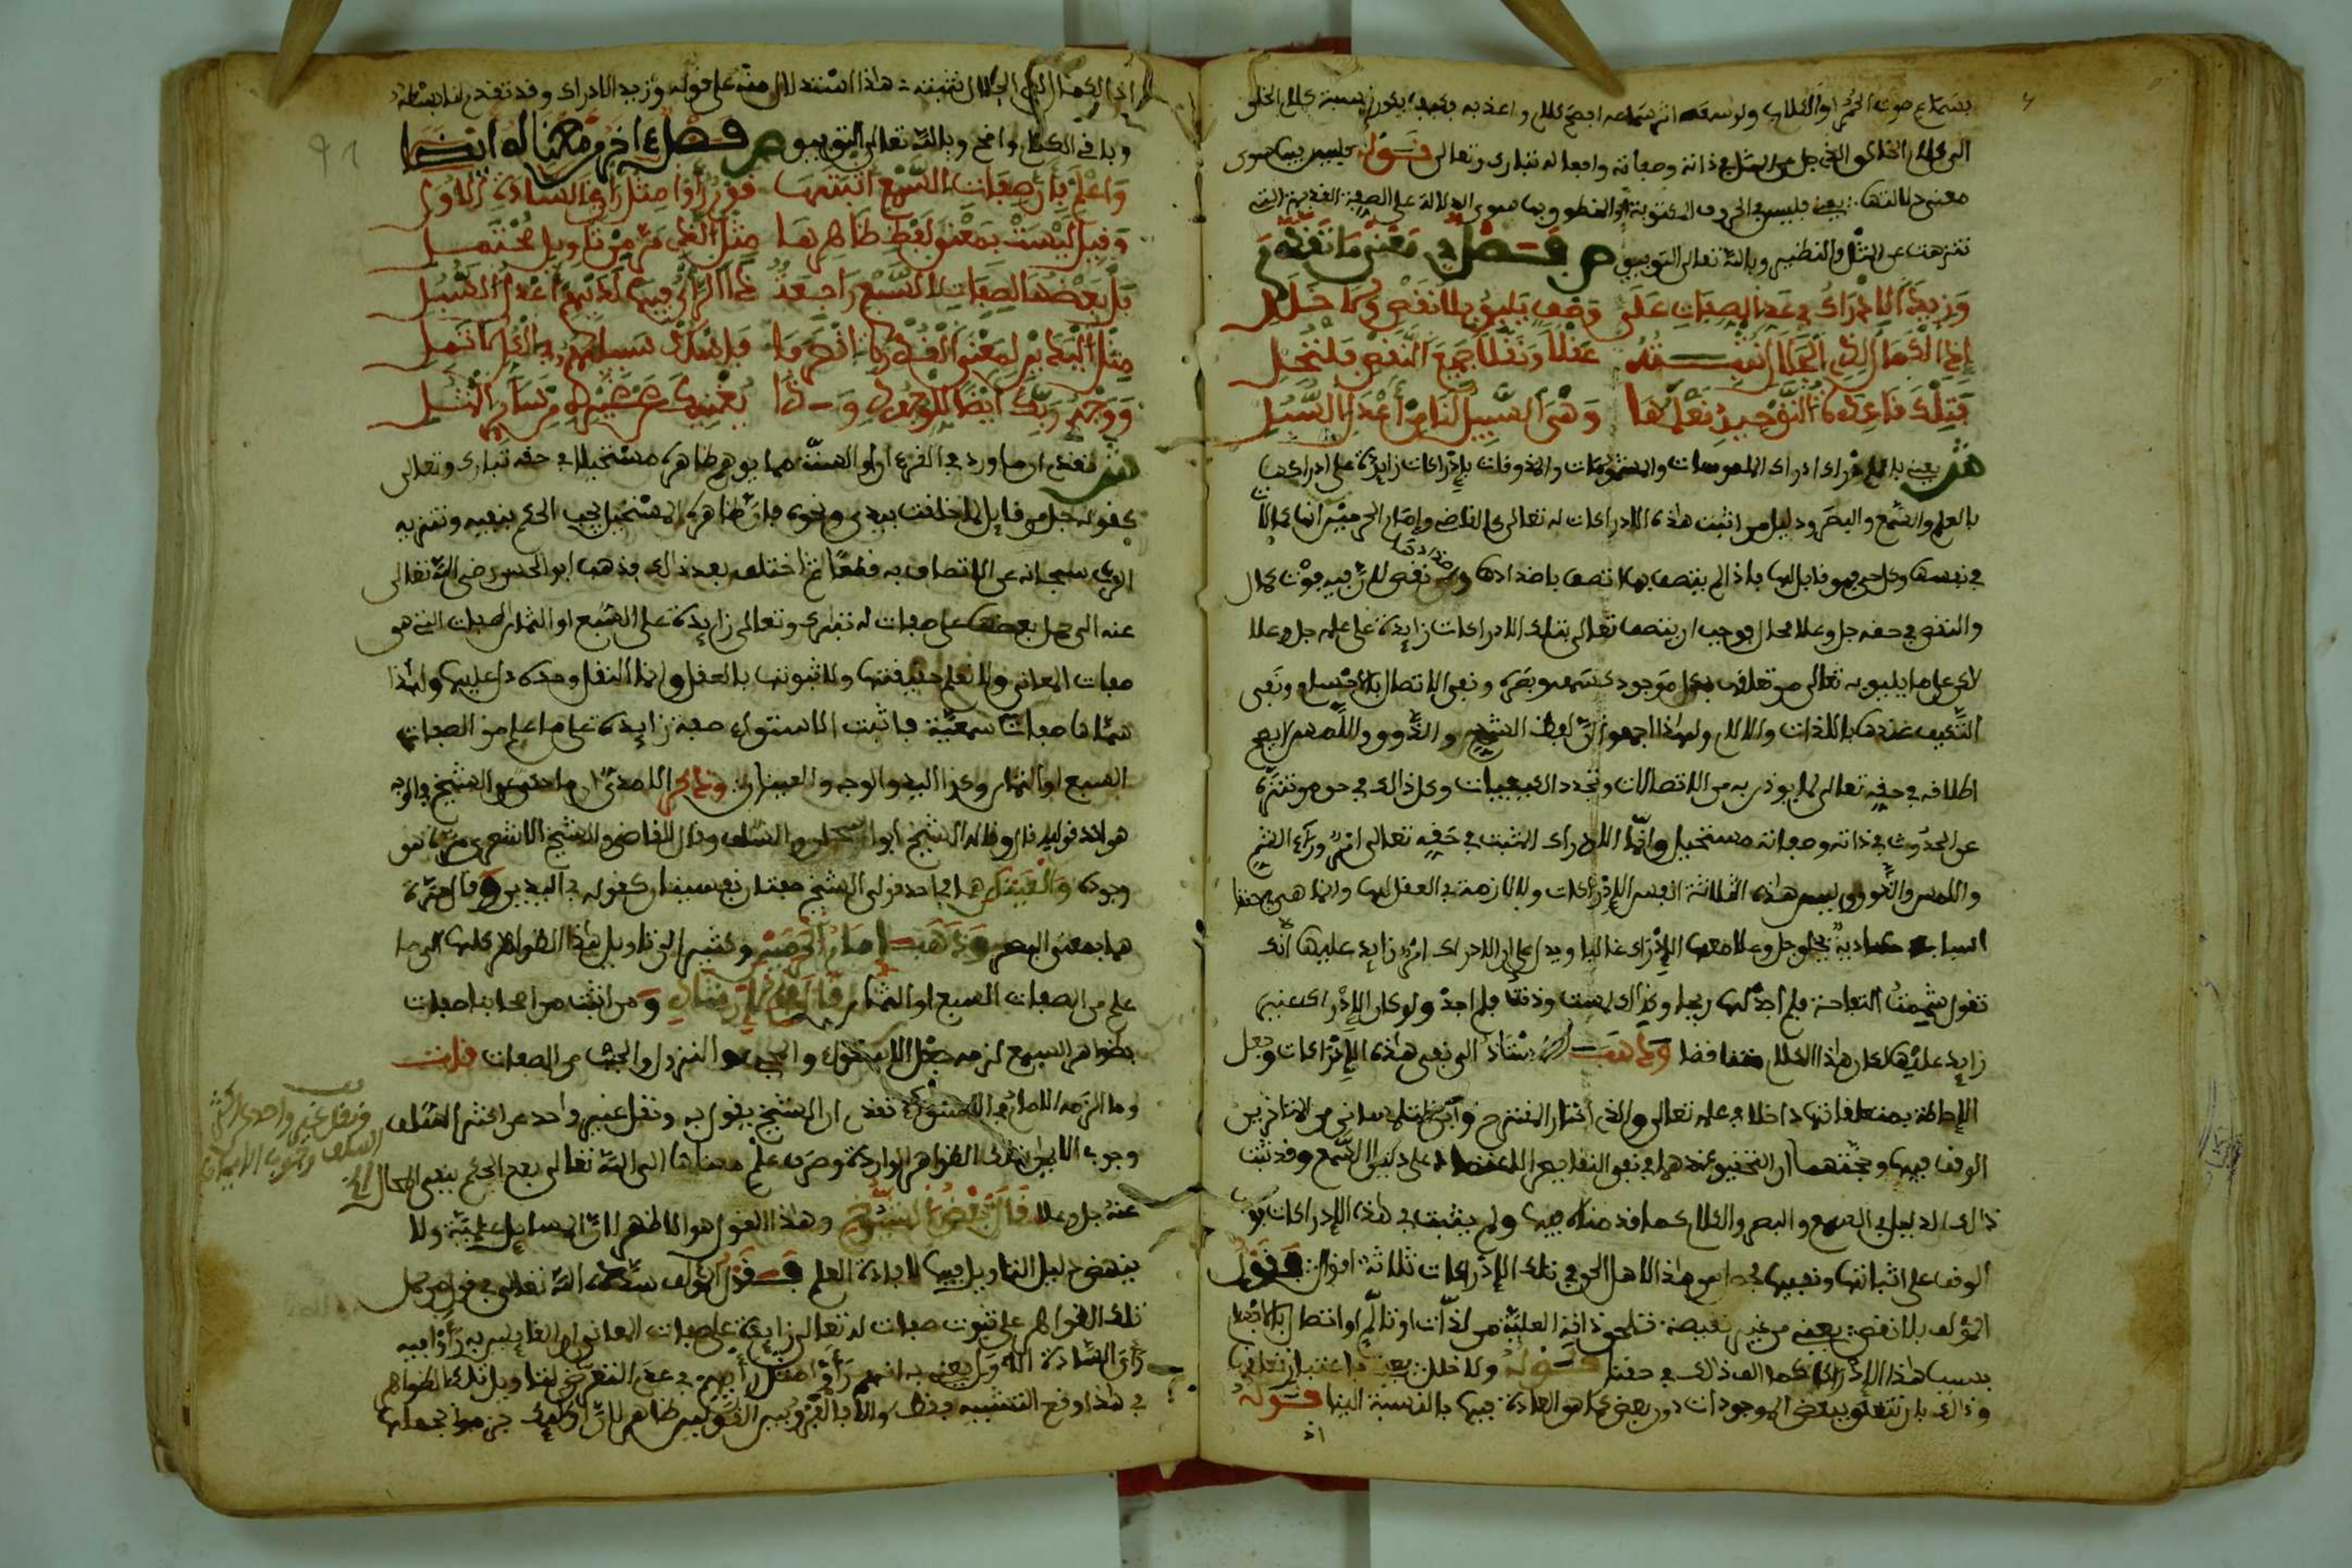 الى كلام الخالق الذي جل عن المثل في ذاته وصفاته وافعاله تبارك وتعالى قوله فليس بها سوى
معنى دلالتها يعني فليس في الحروف المكتوبة او المنطوق بها سوى الدلالة على الصفة القديمة التي
تنزهت عن المثل والنظير وبالله تعالى التوفيق ص فصل في معنى ما تقدم
وزيد الادراك في عد الصفات على وصف يليق بلا نقص ولا خلل
اذ الكمال لذي الجلال نثبته عقلا ونقلا جميع النقص فلتحل
فتلك قاعدة التوحيد نعلمها وهي السبيل لنا من اعدل السبل
ش يعني بالادراك ادراك الملموسات والمشمومات والمذوقات بادراكات زايدة على ادراكها
بالعلم والسمع والبصر ودليل من اثبت هذه الادراكات له تعالى كالقاضي وامام الحرمين انها كمالات
في نفسها وكل حي فهو قابل لها فاذا لم يتصف بها اتصف باضدادها واضدادها نقص لان فيه فوت كمال
والنقص في حقه جل وعلا محال فوجب ان يتصف تعالى بتلك الادراكات زايدة على علمه جل وعلا
لكن على ما يليق به تعالى من تعلقها بكل موجود كسمعه وبصره ونفي الاتصال بالاجسام ونفي
التكيف عندها باللذات والالام ولهذا اجمعوا ان لفظ الشم والذوق واللمس لا يصح
اطلاقه في حقه تعالى لما يوذن به من الاتصالات وتجدد الكيفيات وكل ذلك في حق من تنزه
عن الحدوث في ذاته وصفاته مستحيل وانما الادراك المثبت في حقه تعالى امر وراء الشم
واللمس والذوق وليس هذه الثلاثة انفس الادراكات ولا لازمة في العقل لها وانما هي في حقنا
اسباب عادية يخلق جل وعلا معها الادراك غالبا ويدل على ان الادراك امر زايد عليها انك
تقول شممت التفاحة فلم اجد لها ريحا وكذلك لمست وذقت فلم اجد ولو كان الادراك عنها
زايد عليها لكان هذا الكلام متناقضا وذهب الاستاذ الى نفي هذه الادراكات وجعل
الاحاطة بمتعلقاتها داخلا في علمه تعالى والذي اختار المقترح وابن التلمساني من المتاخرين
الوقف فيها وحجتهما ان التحقيق عندهما في نفي النقايص الاعتماد على دليل السمع وقد ثبت
ذلك الدليل في السمع والبصر والكلام كما قدمناه فيها ولم يثبت في هذه الادراكات فوجب
الوقف على اثباتها ونفيها فحصل من هذا لاهل الحق في تلك الادراكات ثلاثة اقوال فقول
المولف بلا نقص يعني من غير نقيصة تلحق ذاته العلية من لذات او تالم او اتصال بالاجسام
بسبب هذا الادراك كما الف ذلك في حقنا قوله ولا خلل يعني باعتبار تعلقها
وذلك بان تتعلق ببعض الموجودات دون بعض كما هو العادة فيها بالنسبة الينا قوله
اذ الكمال لذي الجلال نثبته هذا استدلال منه على قوله وزيد الادراك وقد تقدم لنا بسطه
وباقي الكلام واضح وبالله تعالى التوفيق ص فصل
واعلم بان صفات السمع اثبتها قوم راوا مثل راي السادة الاول
وقيل ليست بمعنى لفظ ظاهرها
بل بعضها لصفات السبع راجعة
ووجه ربك ايضا للوجود
ش تقدم ان ما ورد في القرءان او السنة مما يوهم ظاهره مستحيلا في حقه تبارك وتعالى
كقوله جل من قايل لما خلقت بيدي ونحوه فان ظاهره المستحيل يجب الحكم بنفيه وتنزيه
الرب سبحانه عن الاتصاف به قطعا ثم اختلف بعد ذلك فذهب ابو الحسن رضي الله تعالى
عنه الى حمل بعضها على صفات له تبارك وتعالى زايدة على السبع او الثمان الصفات التي هي
صفات المعاني ولا نعلم حقيقتها ولا ثبوتها بالعقل وانما النقل وحده دل عليها ولهذا
سماها صفات سمعية فاثبت الاستواء صفة زايدة على ما علم من الصفات
السبع او الثمان وكذا اليد والوجه والعينان وذكر الامدي ان ما حكي عن الشيخ في الوجه
هو احد قوليه قال وقاله الشيخ ابو اسحاق والسلف وقال القاضي والشيخ الاشعري مرة هو
وجوده والعينان هما في احد قولي الشيخ صفتان نفسيتان كقوله في اليدين وقال مرة
هما بمعنى البصر وذهب امام الحرمين وكثير الى تاويل هذه الظواهر كلها الى ما
علم من الصفات السبع او الثمان قال في الارشاد ومن اثبت من اصحابنا صفات
بظواهر السمع لزمه جعل الاستواء والمجيء والنزول والجنب من الصفات قلت
وما الزمه الامام في الاستواء تقدم ان الشيخ يقول به ونقل غير واحد عن اكثر السلف
وجوب الايمان بتلك الظواهر الواردة وصرف علم معناها الى الله تعالى بعد الحكم بنفي المحال
عنه جل وعلا قال بعض الشيوخ وهذا القول هو الاظهر لان المسايل علمية ولا
ينهض دليل التاويل فيها لافادة العلم فقول المولف سامحه الله تعالى في قول من حمل
تلك الظواهر على ثبوت صفات له تعالى زايدة على صفات المعاني ان القايلين به راوا فيه
راي السادة الاول يعني به انهم راوا مثل رايهم في عدم التعرض لتاويل تلك الظواهر
في هذا وقع التشبيه فقط والا فالفرق بين القولين ظاهر لان اوليك جزموا بحملها